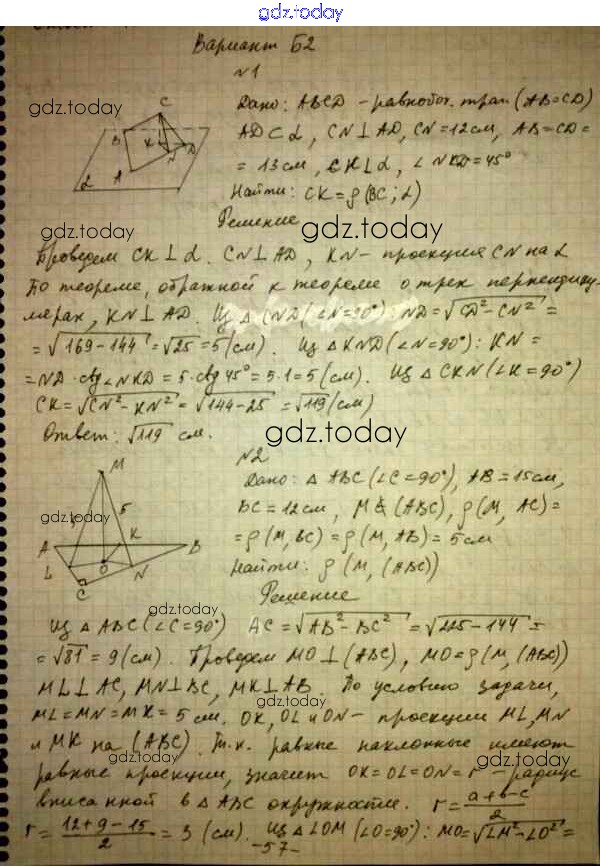 gdz.today
Вариант Б2
№1
Дано: ABCD - равнобок. трап (AB=CD)
AD⊂α, CN⊥AD, CN=12см, AB=CD=
= 13см, CK⊥α, ∠NKD=45°
Найти: CK=ρ(BC;α)
Решение
Проведем CK⊥α. CN⊥AD, KN- проекция CN на α
По теореме, обратной к теореме о трех перпендику-
лярах, KN⊥AD. Из △CND(∠N=90°) ND=√CD²-CN² =
= √169-144 = √25 = 5(см). Из △KND(∠N=90°): KN =
= ND·ctg∠NKD = 5·ctg45° = 5·1=5(см). Из △CKN(∠K=90°)
CK=√CN²-KN² = √144-25 = √119(см)
Ответ: √119 см.
gdz.today
№2
Дано: △ABC(∠C=90°), AB=15см,
BC=12см, M∉(ABC), ρ(M, AC)=
=ρ(M,BC)=ρ(M,AB)=5см
Найти: ρ(M,(ABC))
Решение
Из △ABC(∠C=90°) AC=√AB²-BC² = √225-144 =
= √81 = 9(см). Проведем MO⊥(ABC), MO=ρ(M,(ABC))
ML⊥AC, MN⊥BC, MK⊥AB. По условию задачи,
ML=MN=MK=5см. OK, OL и ON- проекции ML, MN
и MK на (ABC). Т.к. равные наклонные имеют
равные проекции, значит OK=OL=ON=r - радиус
вписанной в △ABC окружности. r=a+b-c/2
r = 12+9-15/2 = 3 (см). Из △LOM(∠O=90°): MO=√LM²-LO² =
-57-